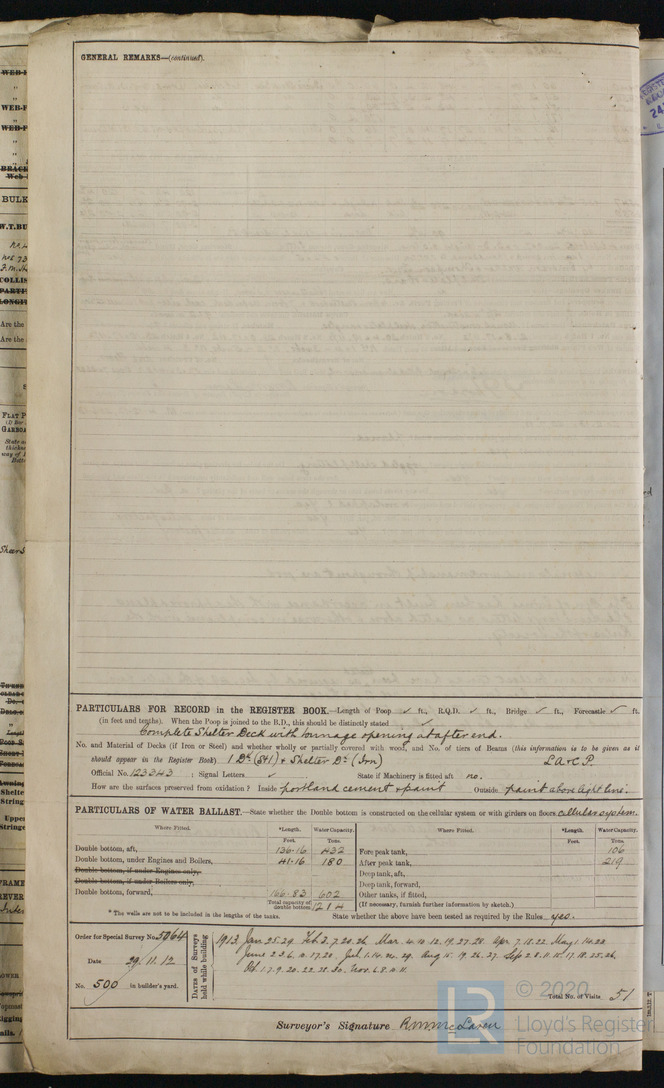 GENERAL REMARKS—(continued).
PARTICULARS FOR RECORD in the REGISTER BOOK.—Length of Poop ✓ ft., R.Q.D. ✓ ft., Bridge ✓ ft., Forecastle ✓ ft.
(in feet and tenths). When the Poop is joined to the B.D., this should be distinctly stated ✓
Complete Shelter Deck with tonnage opening at after end.
No. and Material of Decks (if Iron or Steel) and whether wholly or partially covered with wood, and No. of tiers of Beams (this information is to be given as it
should appear in the Register Book) 1 Dk (Stl) & Shelter Dk (Iron) LA&CP.
Official No. 123343 : Signal Letters ✓ State if Machinery is fitted aft no.
How are the surfaces preserved from oxidation? Inside portland cement & paint Outside paint above light line.
PARTICULARS OF WATER BALLAST.—State whether the Double bottom is constructed on the cellular system or with girders on floors cellular system.
Where Fitted. *Length. Water Capacity. Where Fitted. *Length. Water Capacity.
Feet. Tons. Feet. Tons.
Double bottom, aft, 136.16 432 Fore peak tank, 106
Double bottom, under Engines and Boilers, 41.16 180 After peak tank, 219
Double bottom, if under Engines only, Deep tank, aft,
Double bottom, if under Boilers only, Deep tank, forward,
Double bottom, forward, 166.83 602 Other tanks, if fitted,
Total capacity of double bottom 1214 (If necessary, furnish further information by sketch.)
* The wells are not to be included in the lengths of the tanks. State whether the above have been tested as required by the Rules yes.
Order for Special Survey No. 5064
Date 29.11.12
No. 500 in builder's yard.
DATES of Surveys held while building
1913. Jan. 25. 29. Feb. 3. 7. 20. 26. Mar. 4. 10. 12. 19. 27. 28. Apr. 7. 18. 22. May 1. 14. 22
June 2. 3. 6. 11. 17. 20. Jul. 1. 14. 29. Aug 15. 19. 26. 27. Sep 2. 8. 11. 15. 17. 18. 25. 26.
Oct. 1. 7. 9. 20. 22. 28. 30. Nov. 6. 8. 11.
Total No. of Visits 51
Surveyor's Signature R.M. McLaren
© 2020
Lloyd's Register
Foundation